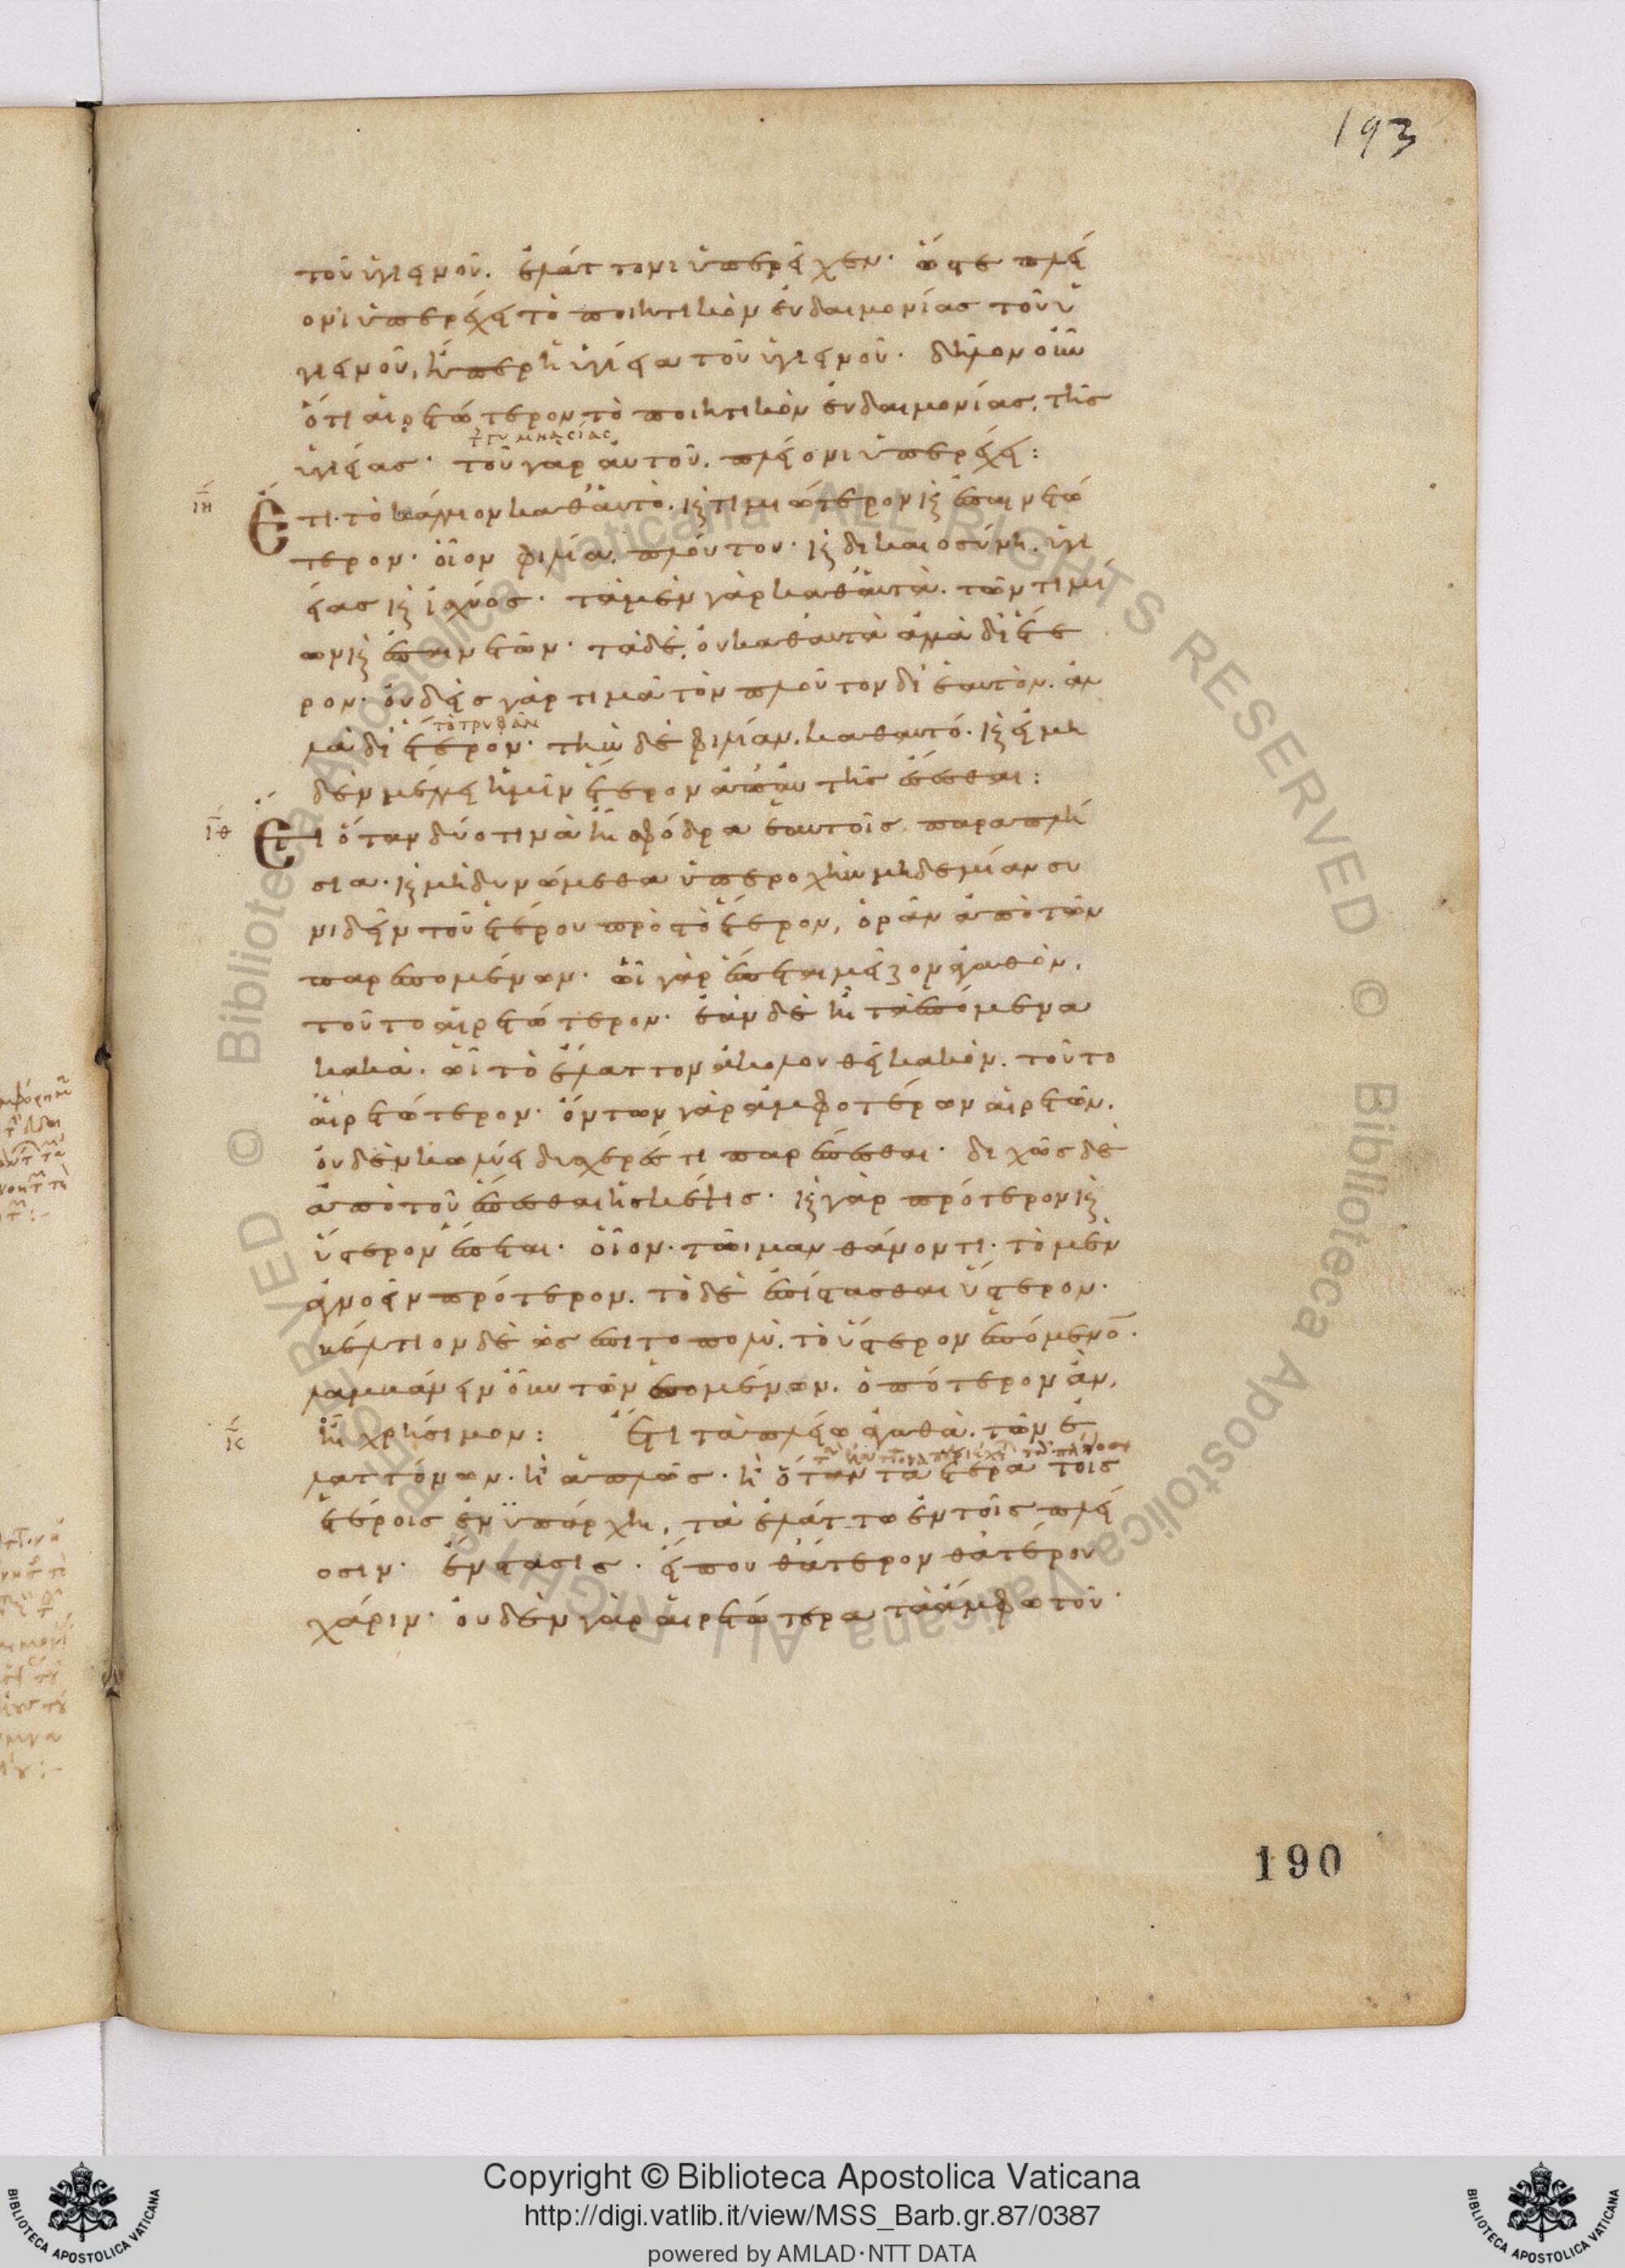 193
τοῦ ὑγιεινοῦ. ἐλάττονι ὑπερεῖχεν· ὥστε πλεί
ονι ὑπερέχει τὸ ποιητικὸν εὐδαιμονίας τοῦ ὑ
γιεινοῦ, ἤπερ ἡ ὑγίεια τοῦ ὑγιεινοῦ. δῆλον οὖν
ὅτι αἱρετώτερον τὸ ποιητικὸν εὐδαιμονίας. τῆς
ὑγιείας· τοῦ γὰρ αὐτοῦ. πλείονι ὑπερέχει:
ιη
Ἔτι· τὸ κάλλιον καθ' αὑτὸ. καὶ τιμιώτερον καὶ ἐπαινετώ
τερον· οἷον φιλία. πλούτου· καὶ δικαιοσύνη. ὑγι
είας καὶ ἰσχύος· τὰ μὲν γὰρ καθ' αὑτὰ. τῶν τιμί
ων καὶ ἐπαινετῶν· τὰ δὲ, οὐ καθ' αὑτὰ ἀλλὰ δι' ἕτε
ρον· οὐδεὶς γὰρ τιμᾷ τὸν πλοῦτον δι' ἑαυτὸν. ἀλ
τὸ τρυφᾶν
λὰ δι' ἕτερον· τὴν δὲ φιλίαν. καθ' αὑτό. καὶ εἰ μη
δὲν μέλλει ἡμῖν ἕτερον ἀπ' αὐτῆς ἔσεσθαι:
ιθ
Ἔτι ὅταν δύο τινὰ ᾖ σφόδρα ἑαυτοῖς παραπλή
σια· καὶ μὴ δυνώμεθα ὑπεροχὴν μηδεμίαν συ
νιδεῖν τοῦ ἑτέρου πρὸς τὸ ἕτερον, ὁρᾶν ἀπὸ τῶν
παρεπομένων· ὧι γὰρ ἕπεται μεῖζον ἀγαθὸν.
τοῦτο αἱρετώτερον· ἐὰν δὲ ᾖ τὰ ἑπόμενα
κακὰ. ὧι τὸ ἔλαττον ἀκολουθεῖ κακὸν. τοῦτο
αἱρετώτερον· ὄντων γὰρ ἀμφοτέρων αἱρετῶν.
οὐδὲν κωλύει δυσχερές τι παρέπεσθαι· διχῶς δὲ
ἀπὸ τοῦ ἕπεσθαι ἡ σκέψις· καὶ γὰρ πρότερον καὶ
ὕστερον ἕπεται· οἷον· τῶι μανθάνοντι· τὸ μὲν
ἀγνοεῖν πρότερον. τὸ δὲ ἐπίστασθαι ὕστερον·
βέλτιον δὲ ὡς ἐπιτοπολὺ. τὸ ὕστερον ἑπόμενον·
λαμβάνειν οὖν τῶν ἑπομένων. ὁπότερον ἂν,
ᾖ χρήσιμον: Ἔτι τὰ πλείω ἀγαθὰ. τῶν ἐ
λαττόνων· ἢ ἁπλῶς· ἢ ὅταν τὰ ἕτερα τοῖς
ἑτέροις ἐνυπάρχη, τὰ ἐλάττω ἐν τοῖς πλεί
οσιν· ἔνστασις· εἴ που θάτερον θατέρου
χάριν· οὐδὲν γὰρ αἱρετώτερα τὰ ἄμφω τοῦ·
190
Copyright © Biblioteca Apostolica Vaticana
http://digi.vatlib.it/view/MSS_Barb.gr.87/0387
powered by AMLAD·NTT DATA